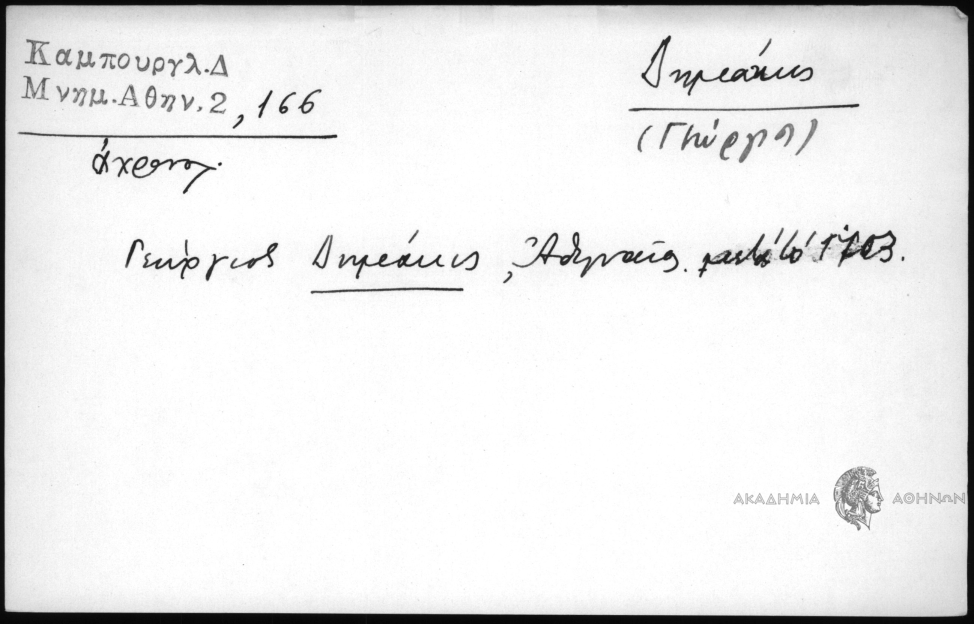 Καμπουργλ.Δ
Μνημ.Αθην.2, 166
ἄχρονη.
Δημάκης
(Γιώργη)
Γεώργιος Δημάκης, Ἀθηναῖος. μετὰ τὸ 1703.
ΑΚΑΔΗΜΙΑ ΑΘΗΝΩΝ